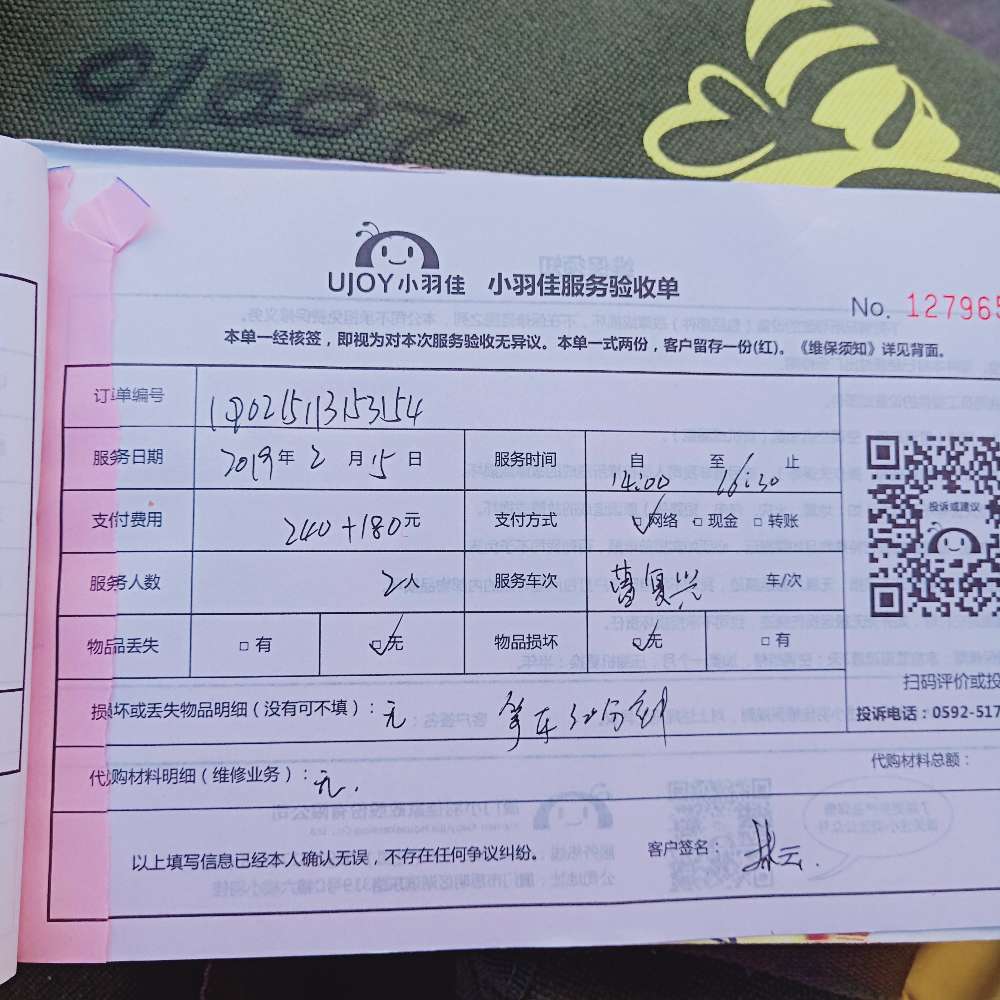 UJOY小羽佳 小羽佳服务验收单
No. 127965
本单一经核签，即视为对本次服务验收无异议。本单一式两份，客户留存一份(红)。《维保须知》详见背面。
订单编号
服务日期 2019年2月15日 服务时间 自14:00至16:30止
支付费用 240+180元 支付方式 ☑网络 □现金 □转账
投诉或建议
服务人数 2人 服务车次 复兴 车/次
物品丢失 □有 ☑无 物品损坏 ☑无 □有
扫码评价或投
损坏或丢失物品明细（没有可不填）：无 等车30分钟
投诉电话：0592-517
代购材料明细（维修业务）：无. 代购材料总额：
以上填写信息已经本人确认无误，不存在任何争议纠纷。 客户签名：